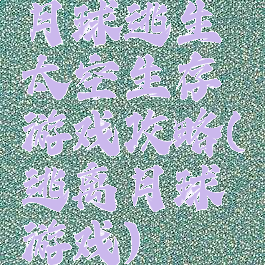 月球逃生
太空生存
游戏攻略(
逃离月球
游戏)